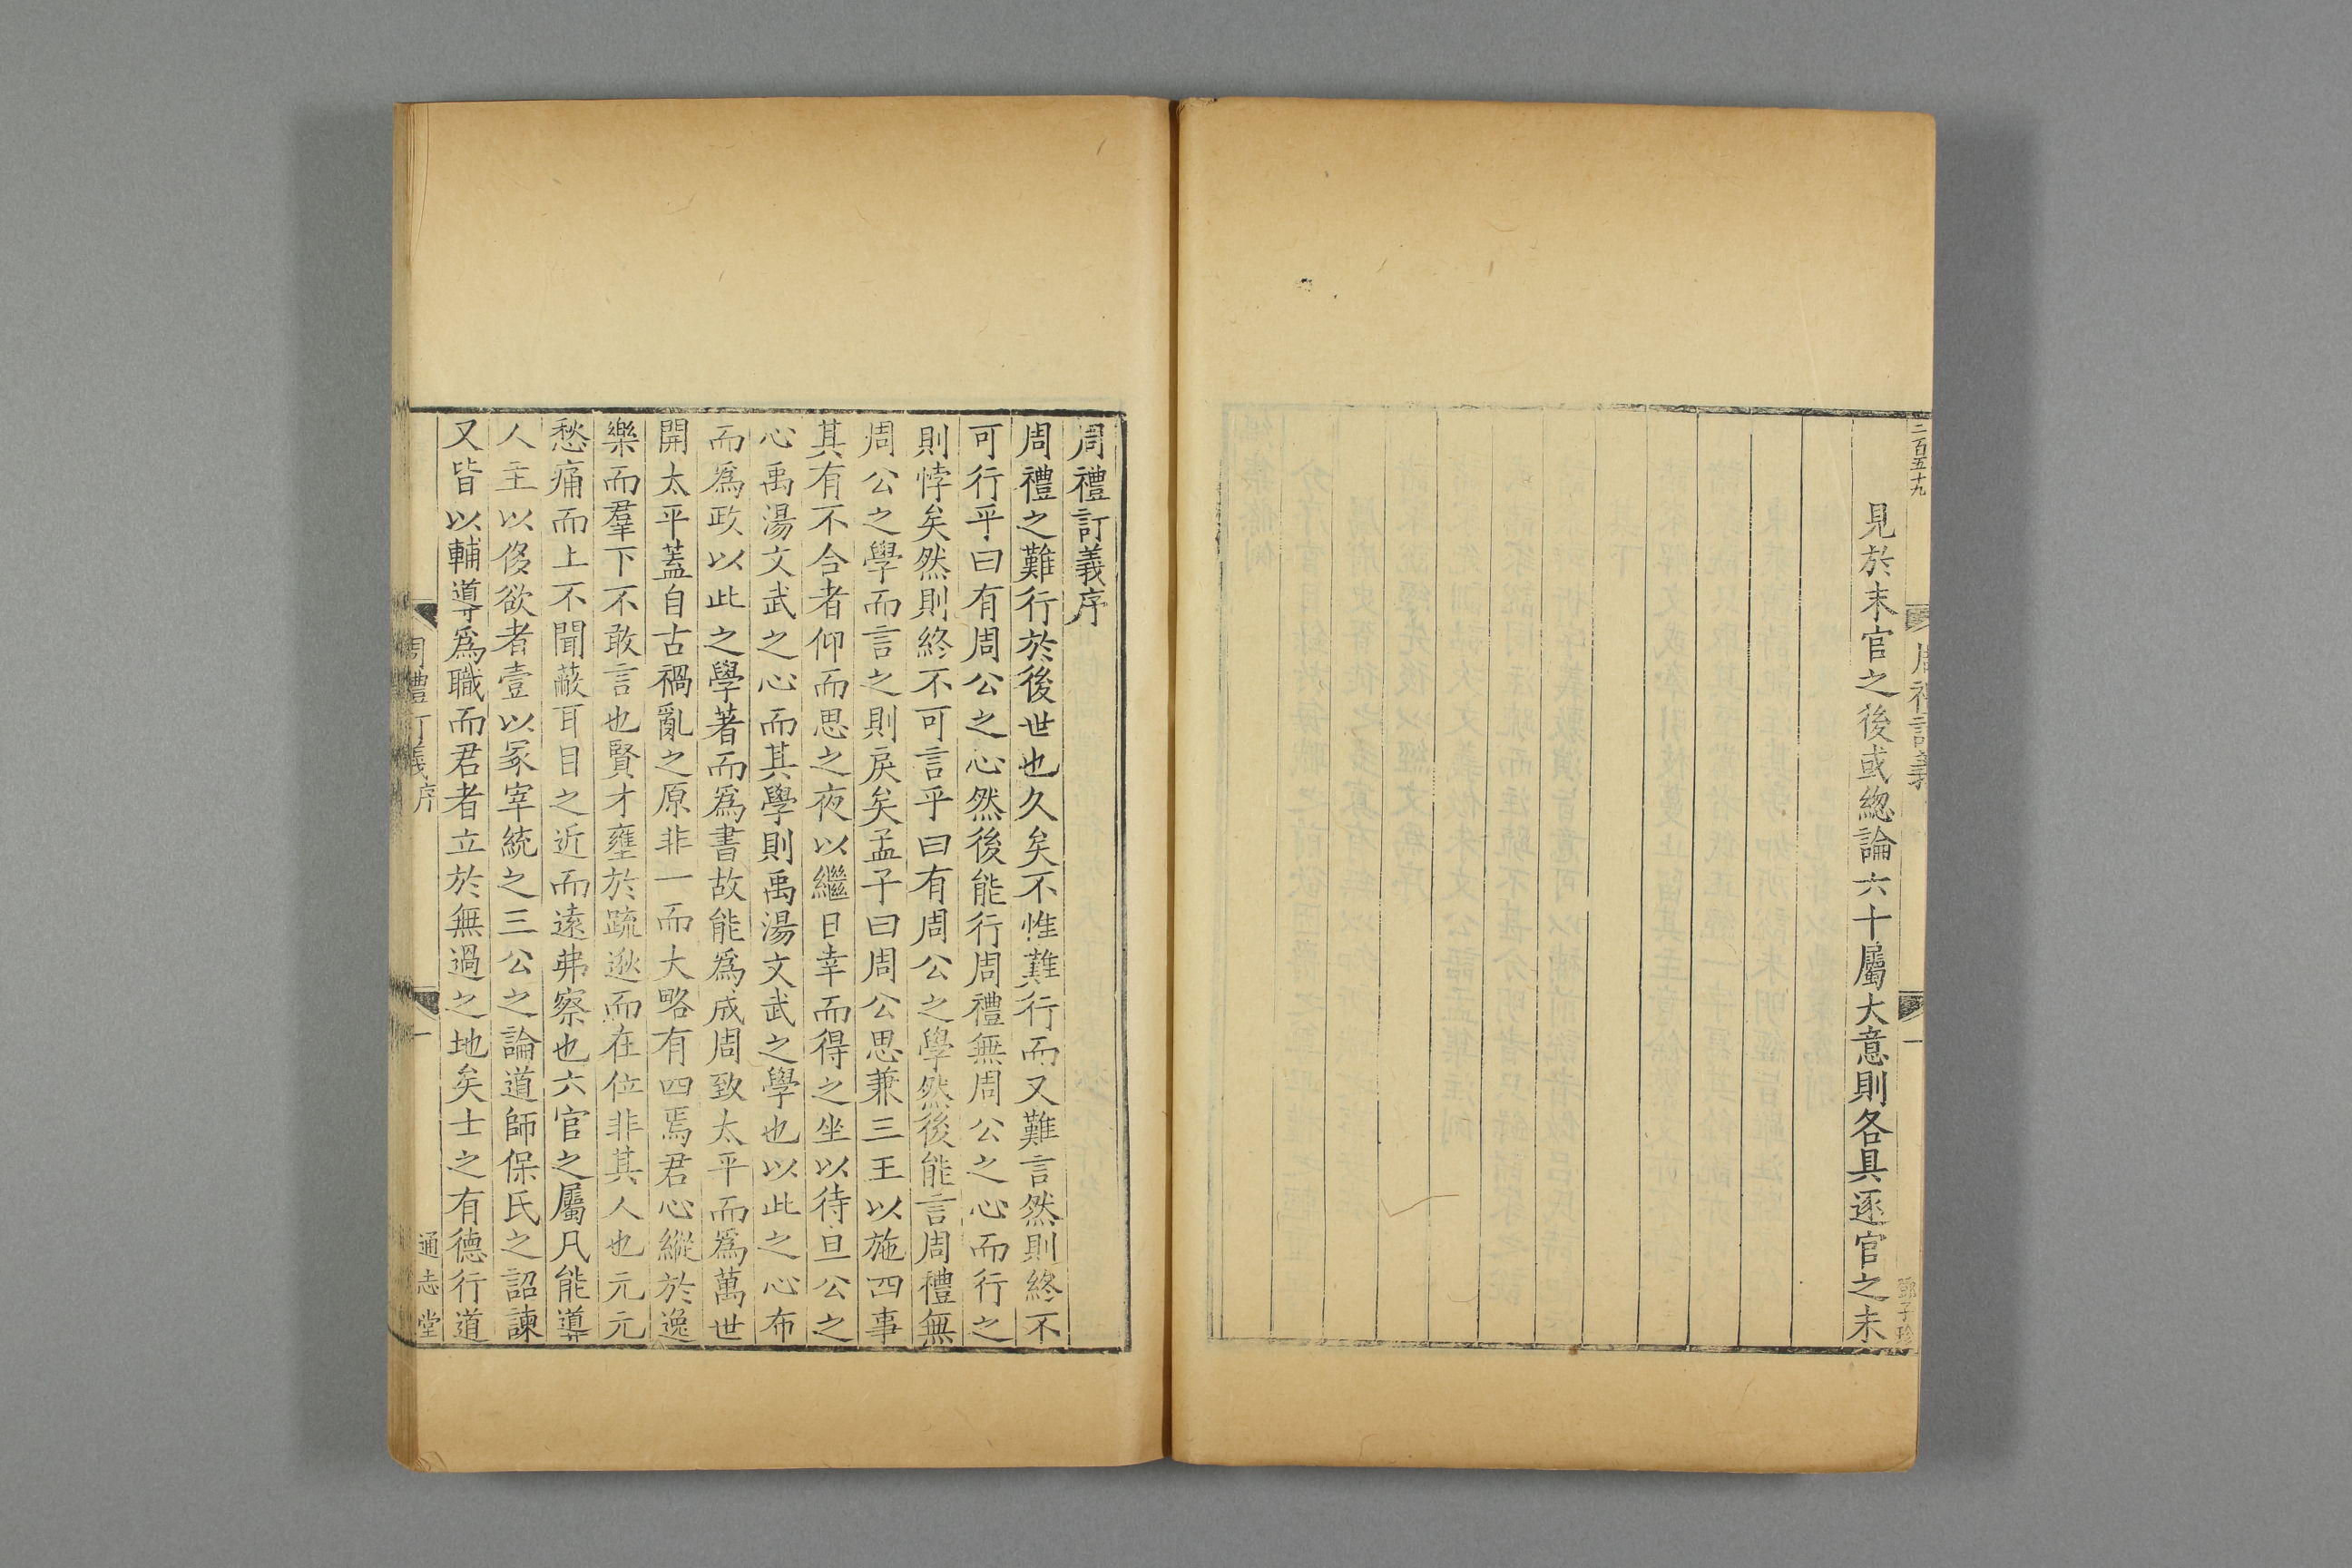 二百五十九
見於末官之後或總論六十屬大意則各具逐官之末
一
周禮訂義序
周禮之難行於後世也久矣不惟難行而又難言然則終不
可行乎曰有周公之心然後能行周禮無周公之心而行之
則悖矣然則終不可言乎曰有周公之學然後能言周禮無
周公之學而言之則戾矣孟子曰周公思兼三王以施四事
其有不合者仰而思之夜以繼日幸而得之坐以待旦公之
心禹湯文武之心而其學則禹湯文武之學也以此之心布
而爲政以此之學著而爲書故能爲成周致太平而爲萬世
開太平蓋自古禍亂之原非一而大略有四焉君心縱於逸
樂而羣下不敢言也賢才壅於疏逖而在位非其人也元元
愁痛而上不聞蔽耳目之近而遠弗察也六官之屬凡能導
人主以侈欲者壹以冢宰統之三公之論道師保氏之詔諫
又皆以輔導爲職而君者立於無過之地矣士之有德行道
周禮訂義序
一
通志堂